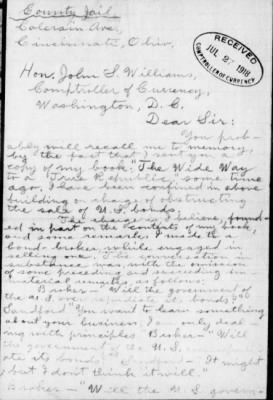 County Jail
Colerain Ave,
Cincinnati, Ohio,
RECEIVED
JUL 2 - 1918
COMPTROLLER OF CURRENCY
Hon. John S. Williams,
Comptroller of Currency,
Washington, D. C.
Dear Sir:
You prob-
ably will recall me to memory,
by the fact that I sent you a
copy of my book: The Wide Way
to a True Republic, some time
ago. I have been confined in above
building on charge of obstructing
the sale of U.S. bonds.
The charge is, I believe, found-
ed in part on the contents of my book,
and some remarks I made to a
bond-broker while engaged in
selling one. The conversation in
substance was, with the omission
of some preceding and succeeding
as follows:
Broker - "Will the government of
the U.S. ever repudiate its bonds
Sandford "You want to learn something
about your business. I am only deal-
ing with principles" Broker - "Will
the government of the U.S.
ate its bonds" - "It might
, but I don't think it will."
Broker - "Will the U S govern-